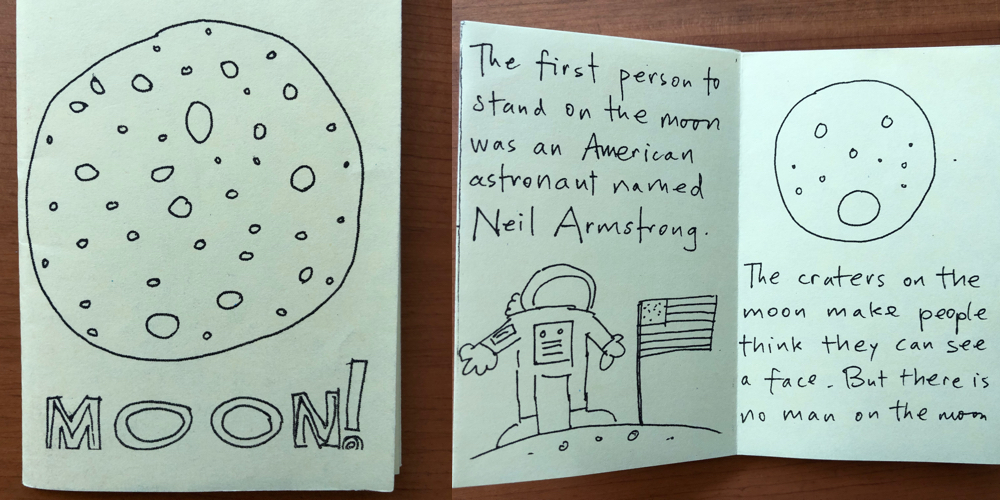 MOON!
The first person to
stand on the moon
was an American
astronaut named
Neil Armstrong.
The craters on the
moon make people
think they can see
a face. But there is
no man on the moon